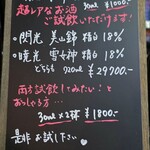 30ml ¥1000-
超レアなお酒
ご試飲いただけます!
・閃光 美山錦 精白18%
・暁光 雪女神 精白18%
どちらも 720ml ¥29700-
両方試飲してみたい…と
おっしゃる方…
30ml×2杯 ¥1800-
是非お試し下さい。